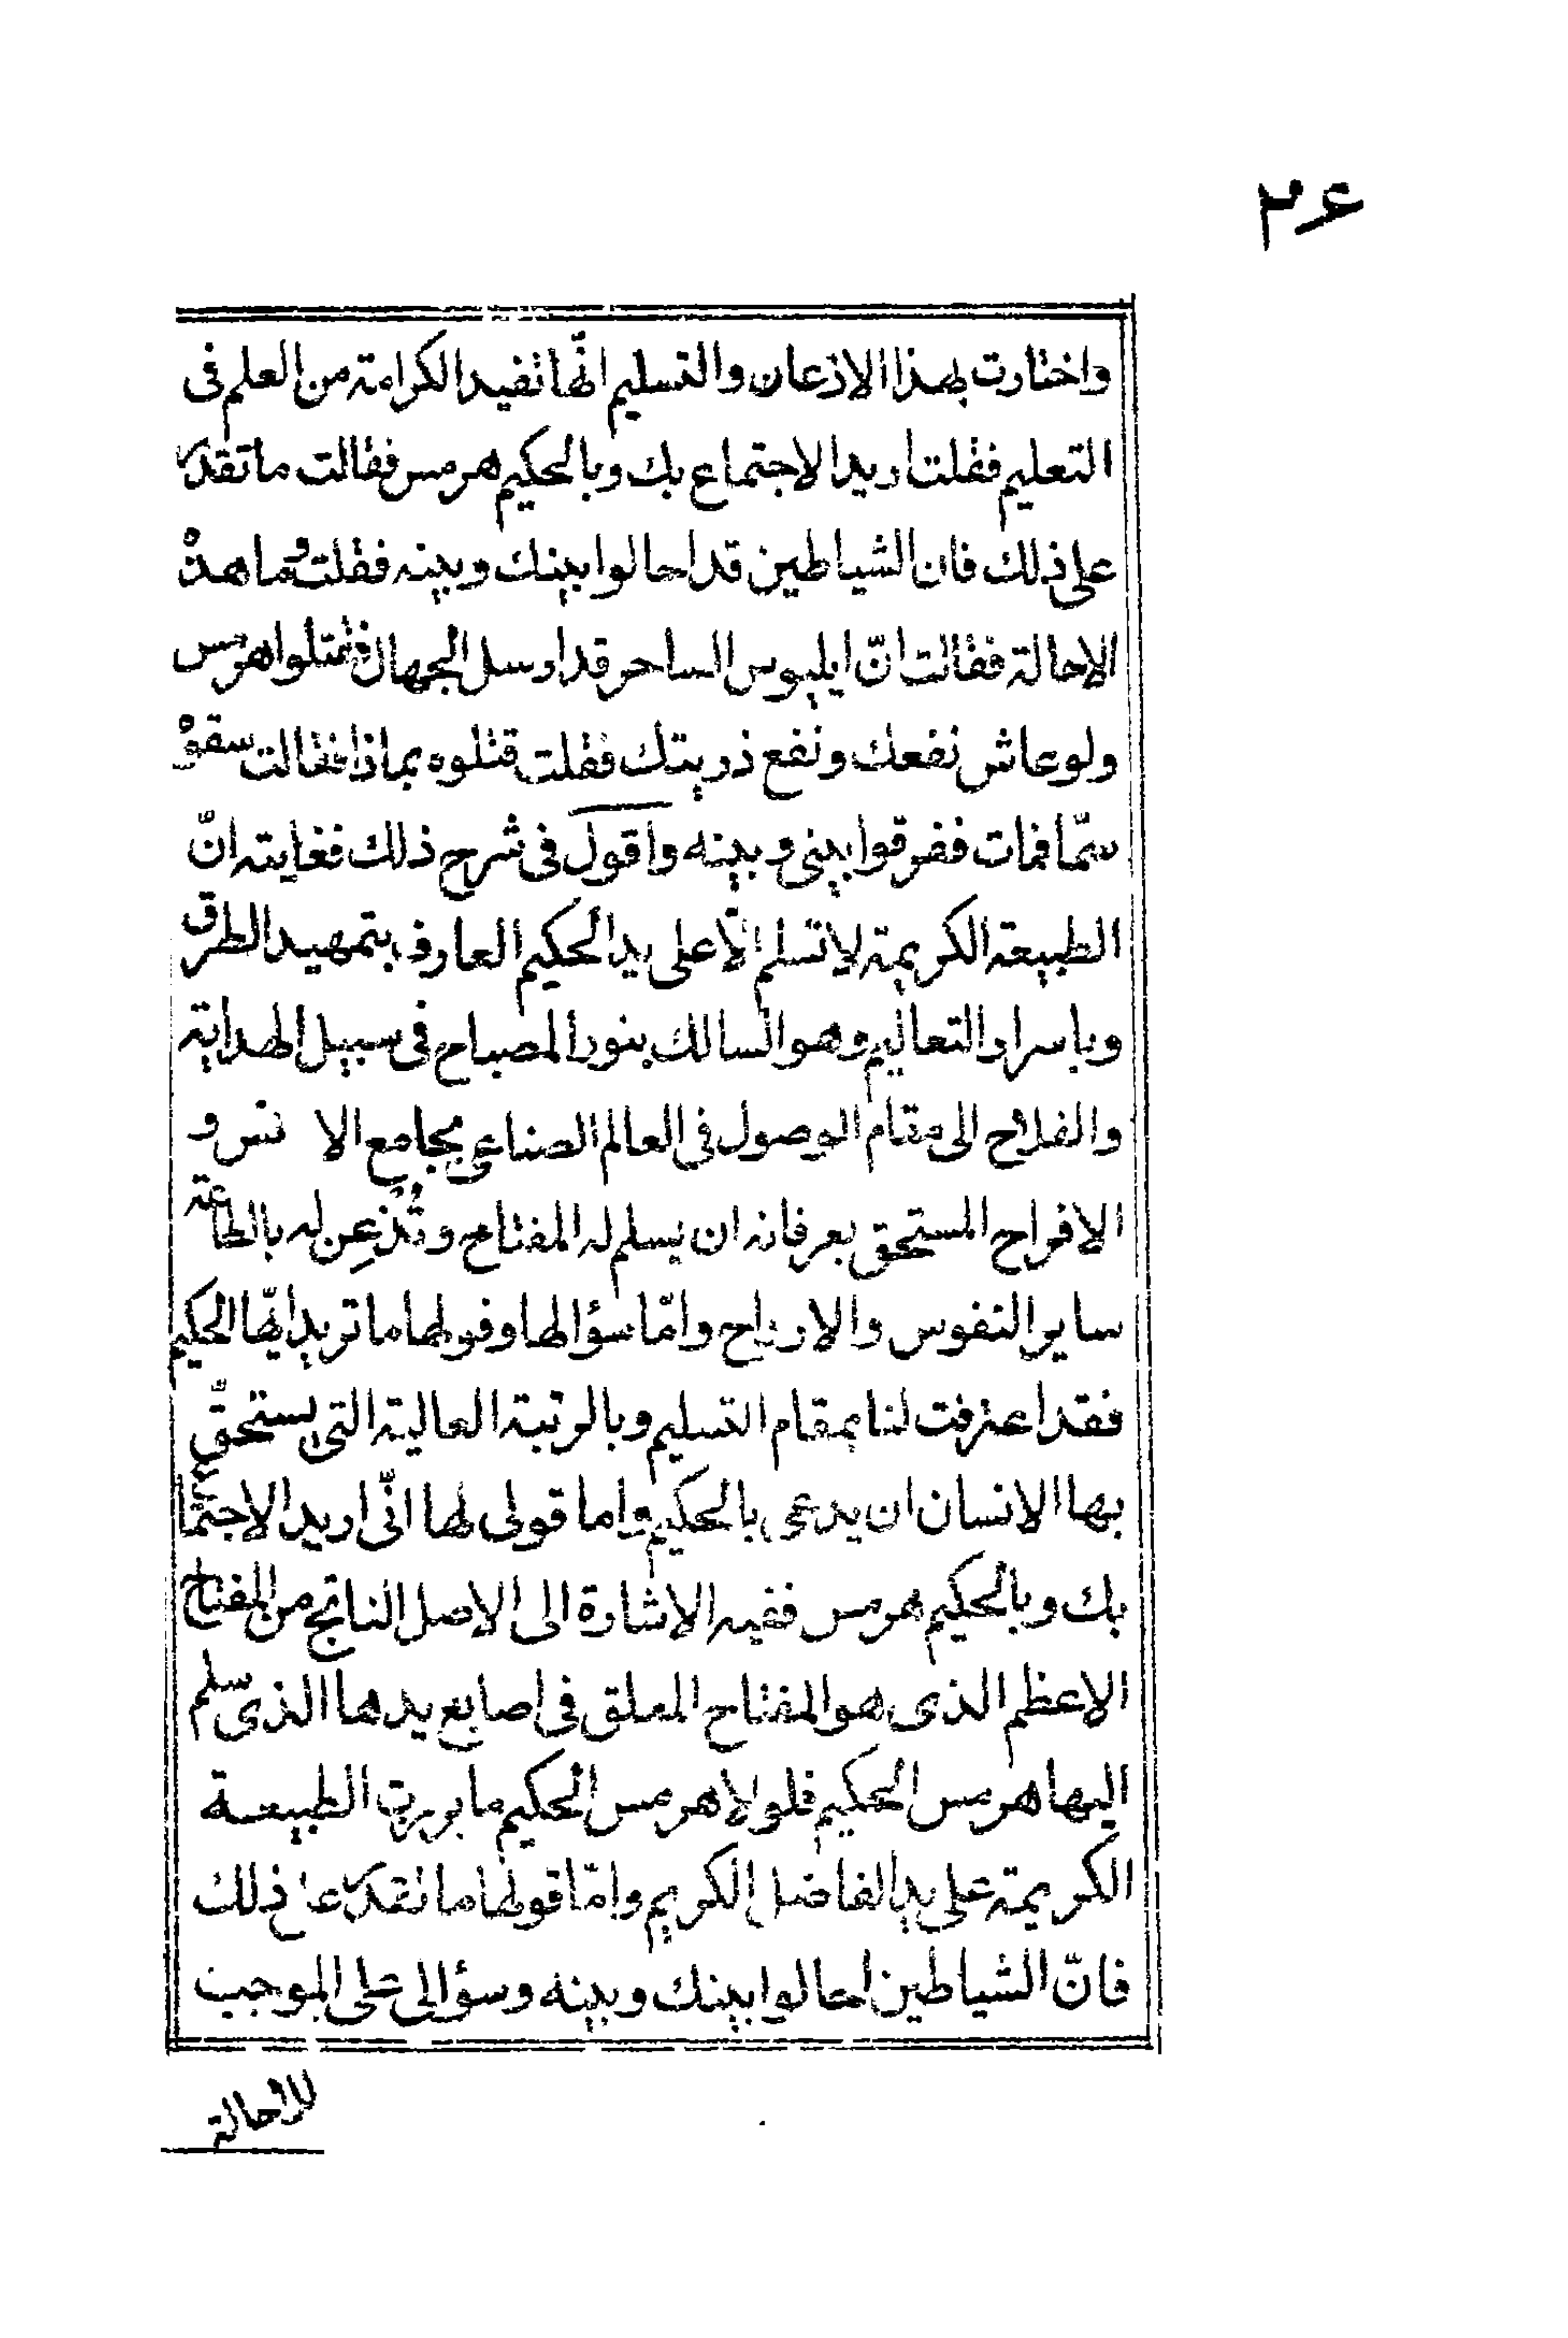 ۲۶
واختارت بهذا الاذعان والتسليم انّها تفيد الكرامة من العلم فى
التعليم فقلت اريد الاجتماع بك وبالحكيم هرمس فقالت ما تقدر
على ذلك فان الشياطين قد احالوا بينك وبينه فقلت وما هذه
الاحالة فقالت انّ ايلبوس الساحر قد ارسل الجهال فقتلوا هرمس
ولو عاش نفعك ونفع ذريتك فقلت قتلوه بماذا فقالت سقوه
سمّا فمات ففرقوا بينى وبينه واقول فى شرح ذلك فغايته انّ
الطبيعة الكريمة لا تسلم الّا على يد الحكيم العارف بتمهيد الطرق
وباسرار التعاليم وهو السالك بنور المصباح فى سبيل الهداية
والفلاح الى مقام الوصول فى العالم الصناعى بمجامع الا نس و
الافراح المستحق بعرفانه ان يسلم له المفتاح وتُذعِن له بالطاعة
ساير النفوس والارواح وامّا سؤالها وقولها ما تريد ايّها الحكيم
فقد اعترفت لنا بمقام التسليم وبالرتبة العالية التى يستحقّ
بها الانسان ان يدعى بالحكيم واما قولى لها انّى اريد الاجتماع
بك وبالحكيم هرمس ففيه الاشارة الى الاصل الناتج من المفتاح
الاعظم الذى هو المفتاح المعلق فى اصابع يدها الذى سلم
اليها هرمس الحكيم فلولا هرمس الحكيم ما برزت الطبيعة
الكريمة على يد الفاضل الكريم وامّا قولها ما تقدر على ذلك
فانّ الشياطين احالوا بينك وبينه وسؤالى على الموجب
للاحالة